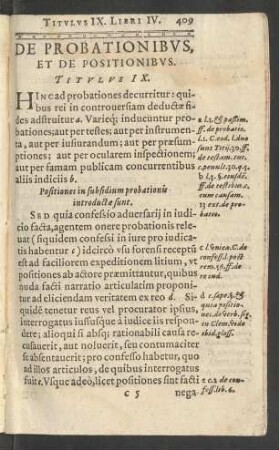 TITVLVS IX. LIBRI IV. 409
DE PROBATIONIBVS,
ET DE POSITIONIBVS.
TITVLVS IX.
HINC ad probationes decurritur: qui-
bus rei in controuersiam deductæ fi-
des adstruitur a. Varieq; inducuntur pro
bationes; aut per testes; aut per instrumen
ta, aut per iusiurandum; aut per præsum-
ptiones; aut per ocularem inspectionem;
aut per famam publicam concurrentibus
aliis indiciis b.
Positiones in subsidium probationis
introductæ sunt.
SED quia confessio aduersarij in iudi-
cio facta, agentem onere probationis rele-
uat (siquidem confessi in iure pro iudica-
tis habentur c) idcircò vsu forensi receptū
est ad faciliorem expeditionem litium, vt
positiones ab actore præmittantur, quibus
nuda facti narratio articulatim proponi-
tur ad eliciendam veritatem ex reo d. Si-
quidē tenetur reus vel procurator ipsius,
interrogatus iussusque à iudice iis respon-
dere; alioqui si absq; rationabili causa re-
cusauerit, aut noluerit, seu contumaciter
se absentauerit; pro confesso habetur, quo
ad illos articulos, de quibus interrogatus
fuit e. Vsque adeò, licet positiones sint facti
C 5 nega
a l.2. & passim.
ff. de probatio.
b l.3. §.
ff. de testibus
c l. vnica. C. de
confess. l. post
rem. 56. ff. de
re iud.
e c. 2. de con-
fess. lib. 6.